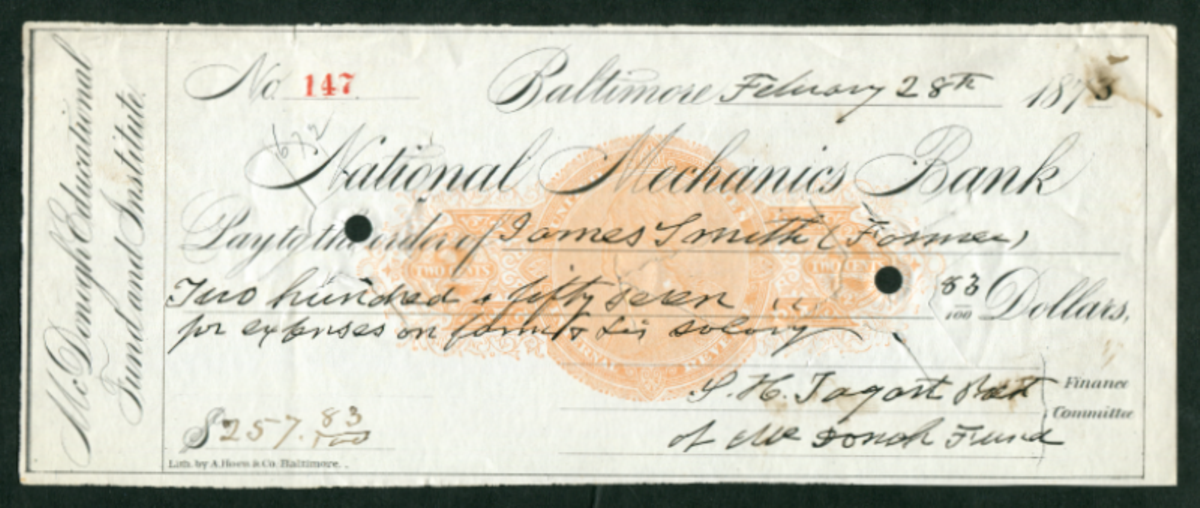 McDonogh Educational
Fund and Institute.
No. 147
Baltimore February 28th 1873
6/32
National Mechanics Bank
Pay to the order of James Smith (Farmer)
Two hundred & fifty seven 83/100 Dollars,
for expenses on farm & his salary
S. H. Tagart Prest
of McDonoh Fund
Finance
Committee
$257.83/100
Lith. by A. Hoen & Co. Baltimore.
TWO CENTS
TWO CENTS